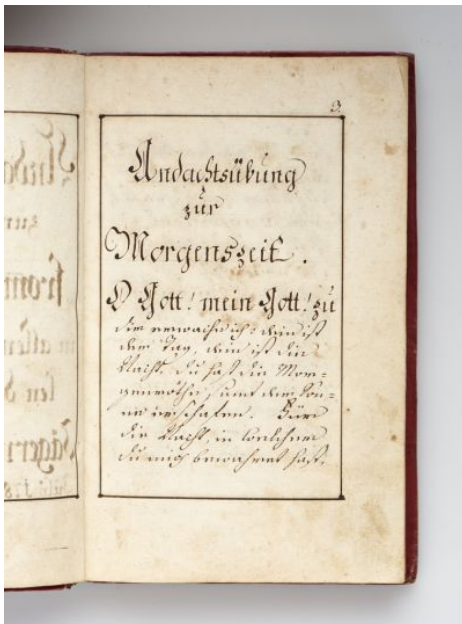 3.
Andachtsübung
zur
Morgenszeit.
O Gott! mein Gott! zu
dir erwache ich: dein ist
der Tag, dein ist die
Nacht. Du hast die Mor=
genröthe, und die Son=
ne erschafen. Für
die Nacht, in welcher
du mich bewahret hast,